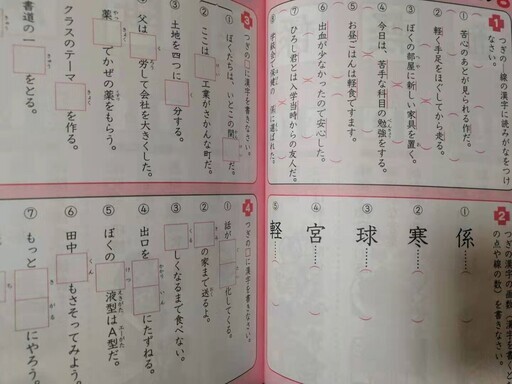 1 つぎの―線の漢字に読みがなをつけなさい。
① 苦心のあとが見られる作だ。
② 軽く手足をほぐしてから走る。
③ ぼくの部屋に新しい家具を置く。
④ 今日は、苦手な科目の勉強をする。
⑤ お昼ごはんは軽食ですます。
⑥ 出血が少なかったので安心した。
⑦ ひろし君とは入学当時からの友人だ。
⑧ 学級会で保健の 係に選ばれた。
2 つぎの漢字の画数(漢字を書くときの点や線の数)を書きなさい。
① 係……
② 寒……
③ 球……
④ 宮……
⑤ 軽……
3 つぎの□に漢字を書きなさい。
① ぼくたちは、いとこの関□だ。
② ここは□工業がさかんな町だ。
③ 土地を四つに□分する。
④ 父は□労して会社を大きくした。
薬□でかぜの薬をもらう。
クラスのテーマ□を作る。
書道の□をとる。
4 つぎの□に漢字を書きなさい。
① 話が□化してくる。
② □の家まで送るよ。
③ □しくなるまで食べない。
④ 出口を□□にたずねる。
⑤ ぼくの□液型はA型だ。
⑥ 田中□もさそってみよう。
⑦ もっと□□にやろう。